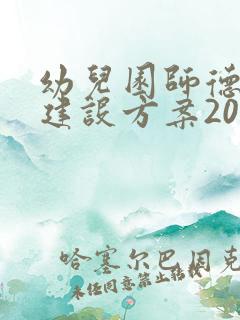 幼兒園師德
建設方案20
哈塞尔巴因克
未经同意禁止转载